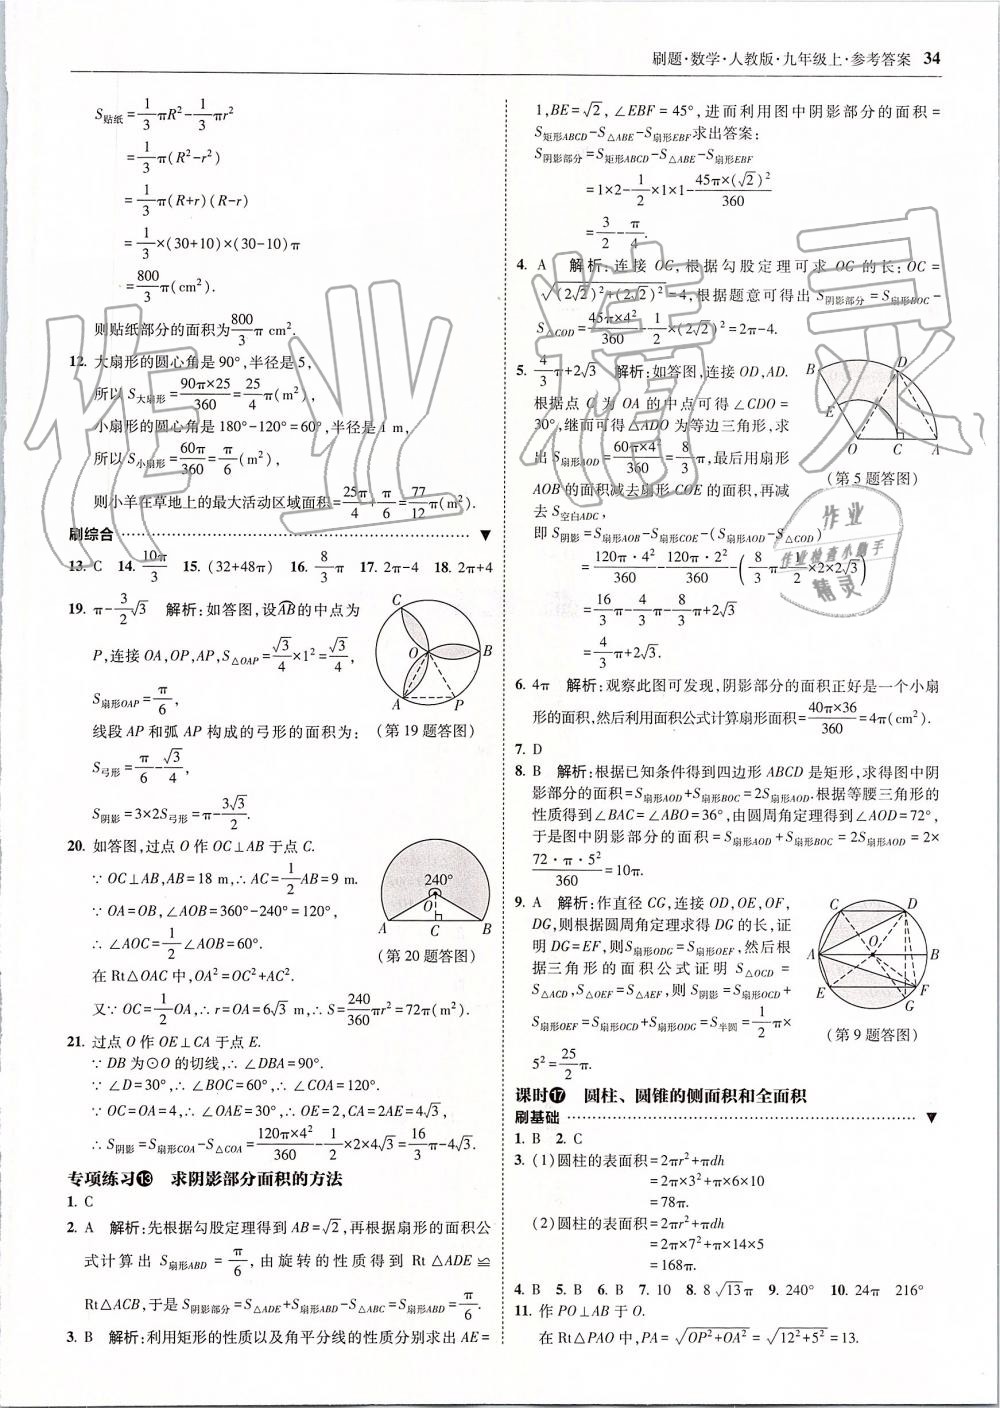 刷题·数学·人教版·九年级上·参考答案 34
S贴纸=1/3πR²-1/3πr²
=1/3π(R²-r²)
=1/3π(R+r)(R-r)
=1/3×(30+10)×(30-10)π
=800/3π(cm²).
则贴纸部分的面积为800/3π cm².
12. 大扇形的圆心角是90°,半径是5,
所以S大扇形=90π×25/360=25/4π(m²),
小扇形的圆心角是180°-120°=60°,半径是1 m,
所以S小扇形=60π/360=π/6(m²),
则小羊在草地上的最大活动区域面积=25π/4+π/6=77/12π(m²).
刷综合
13. C 14. 10π/3 15. (32+48π) 16. 8/3π 17. 2π-4 18. 2π+4
19. π-3/2√3 解析:如答图,设AB的中点为
P,连接OA,OP,AP,S△OAP=√3/4×1²=√3/4,
S扇形OAP=π/6,
线段AP和弧AP构成的弓形的面积为:
S弓形=π/6-√3/4,
S阴影=3×2S弓形=π-3√3/2.
C
O
B
A
P
(第19题答图)
20. 如答图,过点O作OC⊥AB于点C.
∵OC⊥AB,AB=18 m,∴AC=1/2AB=9 m.
∵OA=OB,∠AOB=360°-240°=120°,
∴∠AOC=1/2∠AOB=60°.
在Rt△OAC中,OA²=OC²+AC².
又∵OC=1/2OA,∴r=OA=6√3 m,∴S=240/360πr²=72π(m²).
240°
O
A
C
B
(第20题答图)
21. 过点O作OE⊥CA于点E.
∵DB为⊙O的切线,∴∠DBA=90°.
∵∠D=30°,∴∠BOC=60°,∴∠COA=120°.
∵OC=OA=4,∴∠OAE=30°,∴OE=2,CA=2AE=4√3,
∴S阴影=S扇形COA-S△COA=120π×4²/360-1/2×2×4√3=16/3π-4√3.
专项练习⑬ 求阴影部分面积的方法
1. C
2. A 解析:先根据勾股定理得到AB=√2,再根据扇形的面积公
式计算出S扇形ABD=π/6,由旋转的性质得到Rt△ADE≌
Rt△ACB,于是S阴影部分=S△ADE+S扇形ABD-S△ABC=S扇形ABD=π/6.
3. B 解析:利用矩形的性质以及角平分线的性质分别求出AE=
1,BE=√2,∠EBF=45°,进而利用图中阴影部分的面积=
S矩形ABCD-S△ABE-S扇形EBF求出答案:
S阴影部分=S矩形ABCD-S△ABE-S扇形EBF
=1×2-1/2×1×1-45π×(√2)²/360
=3/2-π/4.
4. A 解析:连接OC,根据勾股定理可求OC的长:OC=
√(2√2)²+(2√2)²=4,根据题意可得出S阴影部分=S扇形BOC-
S△COD=45π×4²/360-1/2×(2√2)²=2π-4.
5. 4/3π+2√3 解析:如答图,连接OD,AD.
根据点C为OA的中点可得∠CDO=
30°,继而可得△ADO为等边三角形,求
出S扇形AOD=60π×4²/360=8/3π,最后用扇形
AOB的面积减去扇形COE的面积,再减
去S空白ADC,
即S阴影=S扇形AOB-S扇形COE-(S扇形AOD-S△COD)
=120π·4²/360-120π·2²/360-(8/3π-1/2×2×2√3)
=16/3π-4/3π-8/3π+2√3
=4/3π+2√3.
B
D
E
O
C
A
(第5题答图)
6. 4π 解析:观察此图可发现,阴影部分的面积正好是一个小扇
形的面积,然后利用面积公式计算扇形面积=40π×36/360=4π(cm²).
7. D
8. B 解析:根据已知条件得到四边形ABCD是矩形,求得图中阴
影部分的面积=S扇形AOD+S扇形BOC=2S扇形AOD.根据等腰三角形的
性质得到∠BAC=∠ABO=36°,由圆周角定理得到∠AOD=72°,
于是图中阴影部分的面积=S扇形AOD+S扇形BOC=2S扇形AOD=2×
72·π·5²/360=10π.
9. A 解析:作直径CG,连接OD,OE,OF,
DG,则根据圆周角定理求得DG的长,证
明DG=EF,则S扇形ODG=S扇形OEF,然后根
据三角形的面积公式证明S△OCD=
S△ACD,S△OEF=S△AEF,则S阴影=S扇形OCD+
S扇形OEF=S扇形OCD+S扇形ODG=S半圆=1/2π×
5²=25/2π.
C
D
A
O
B
E
F
G
(第9题答图)
课时⑰ 圆柱、圆锥的侧面积和全面积
刷基础
1. B 2. C
3. (1)圆柱的表面积=2πr²+πdh
=2π×3²+π×6×10
=78π.
(2)圆柱的表面积=2πr²+πdh
=2π×7²+π×14×5
=168π.
4. B 5. B 6. B 7. 10 8. 8√13π 9. 240° 10. 24π 216°
11. 作PO⊥AB于O.
在Rt△PAO中,PA=√OP²+OA²=√12²+5²=13.
作业精灵
作业
作业检查小助手
精灵